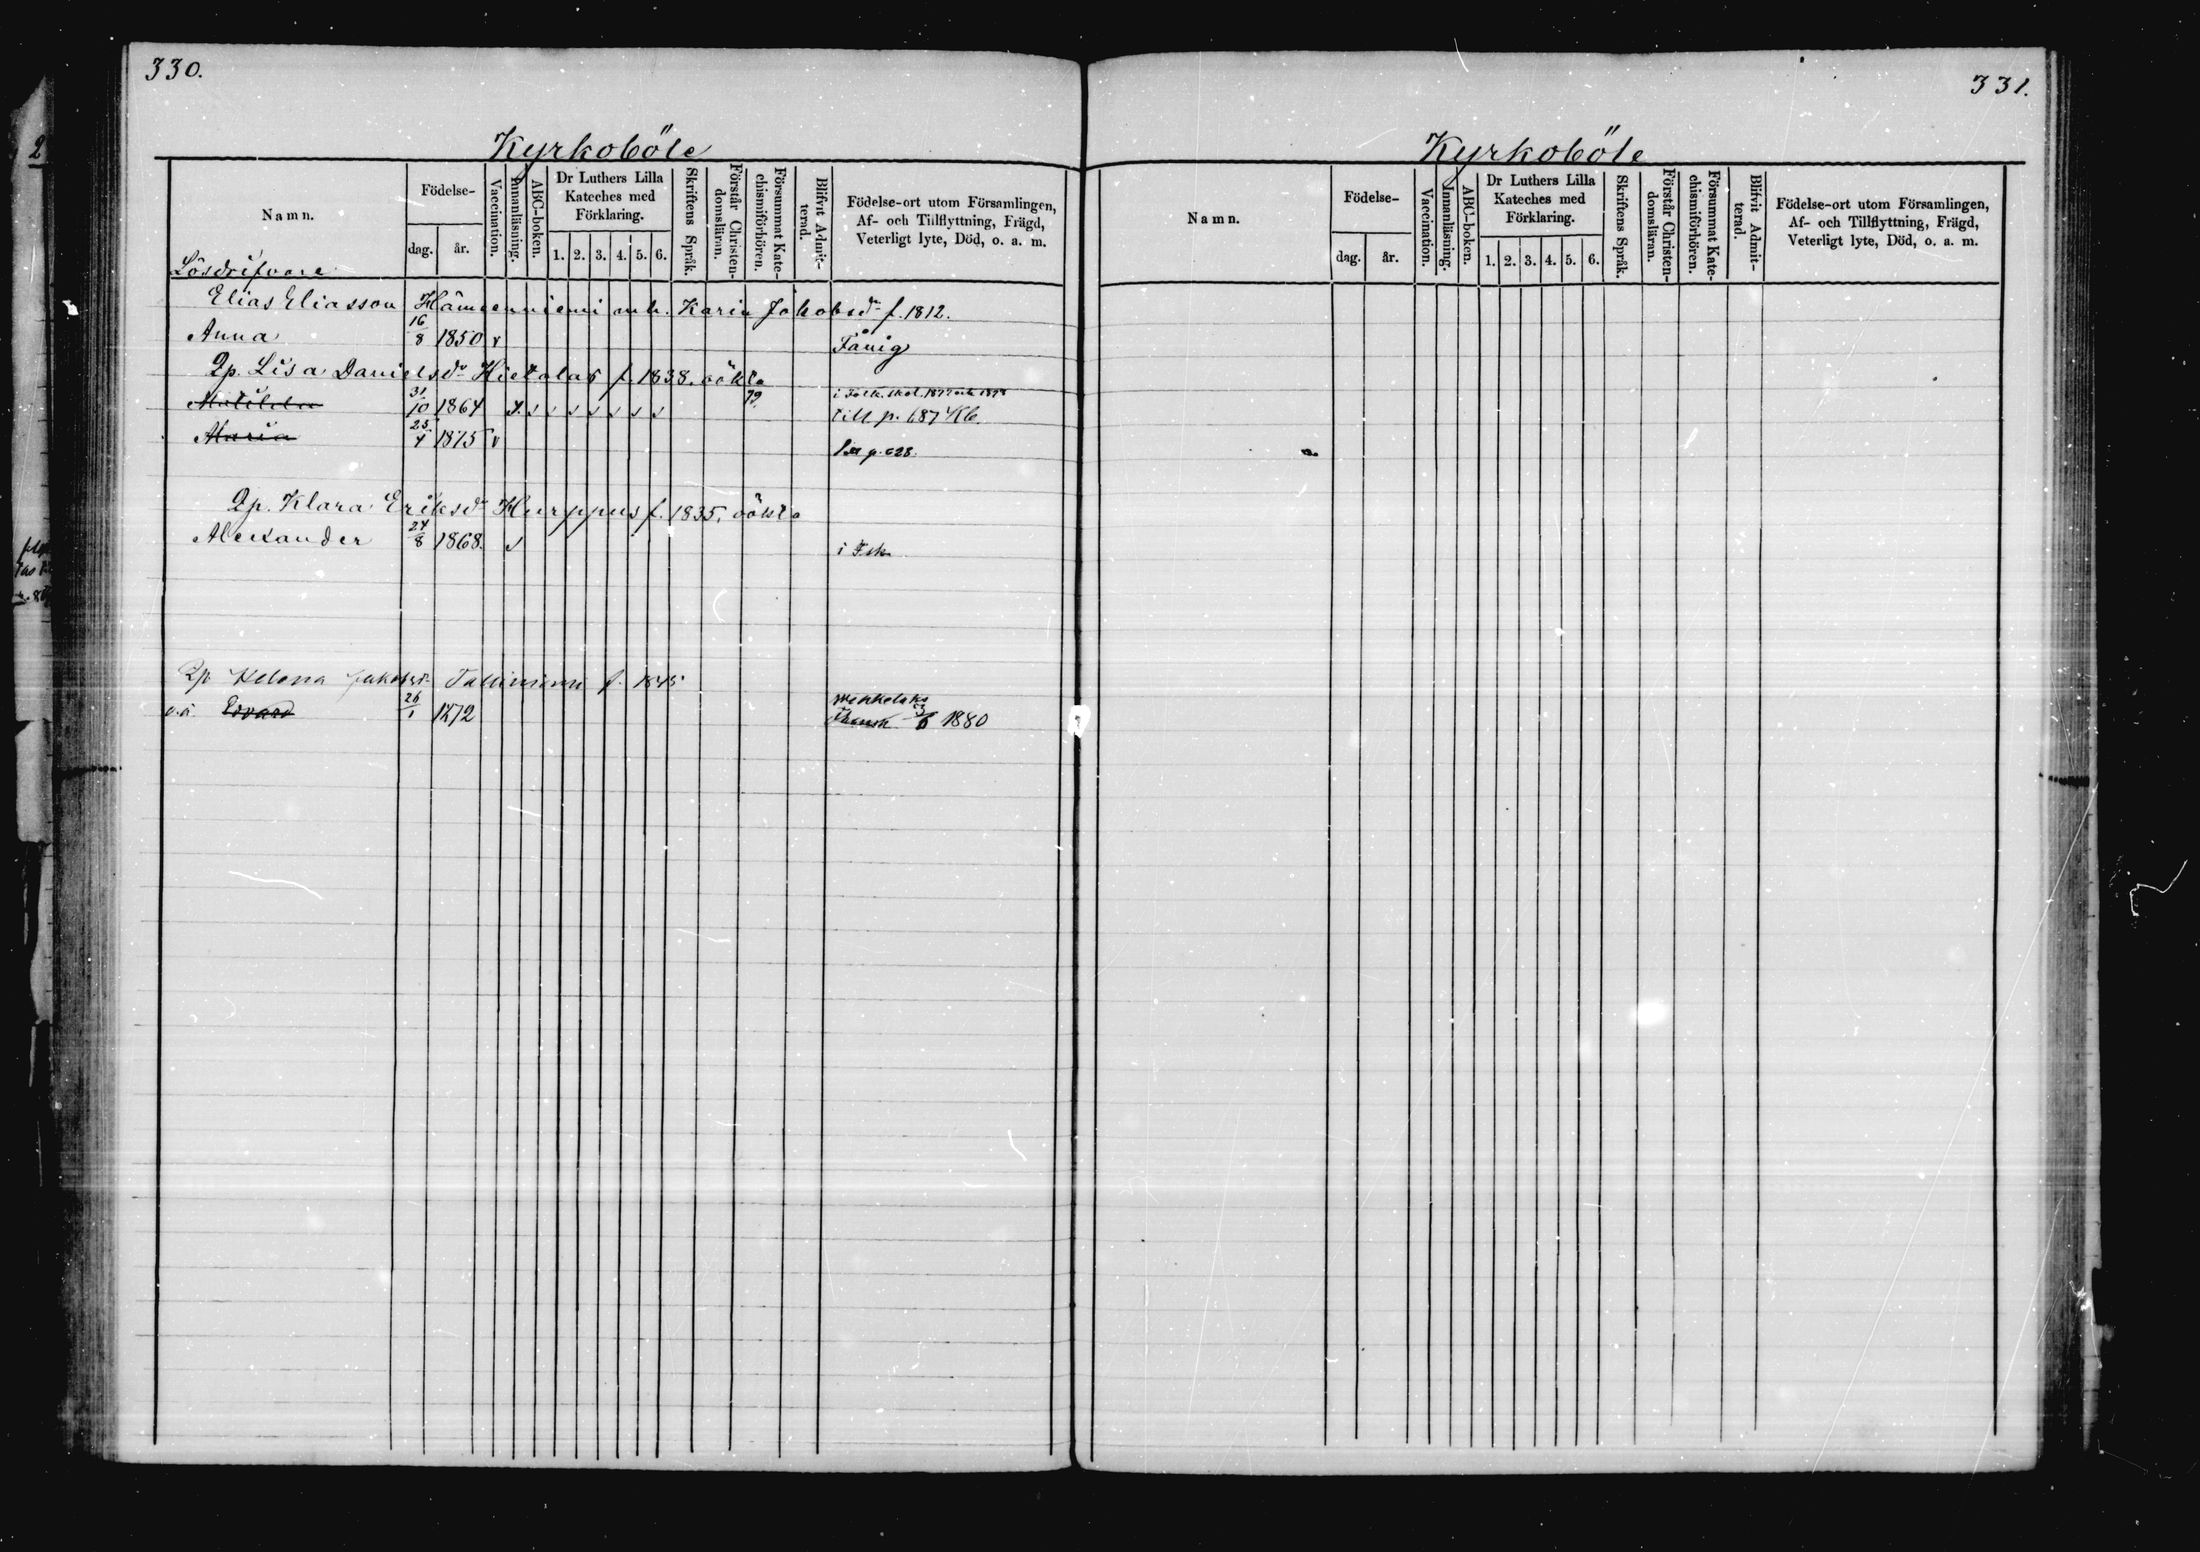 330.
Kyrkoböle
Namn.
Födelse-
dag.
år.
Vaccination.
Innanläsning.
ABC-boken.
Dr Luthers Lilla
Kateches med
Förklaring.
1. 2. 3. 4. 5. 6.
Skriftens Språk.
Förstår Christen-
domsläran.
Försummat Kate-
chismiförhören.
Blifvit Admit-
terad.
Födelse-ort utom Församlingen,
Af- och Tillflyttning, Frägd,
Veterligt lyte, Död, o. a. m.
Lösdrifvare
Elias Eliasson Hämeenniemi m.h. Karin Jakobsdr f. 1812.
Anna 16/8 1850 v Fånig
Qp. Lisa Danielsdr Hietalas f. 1838.
Matilda 31/10 1864 79. i Folk. skol. 1877 och 1878
till p. 687
Maria 25/4 1875 v p. 628.
Qp. Klara Eriksdr Hurppus f. 1835.
Alexander 24/8 1868. i Fsk
Qp Helena f. 1845
o.ä. Edvard 26/1 1872 1880
331.
Kyrkoböle
Namn.
Födelse-
dag.
år.
Vaccination.
Innanläsning.
ABC-boken.
Dr Luthers Lilla
Kateches med
Förklaring.
1. 2. 3. 4. 5. 6.
Skriftens Språk.
Förstår Christen-
domsläran.
Försummat Kate-
chismiförhören.
Blifvit Admit-
terad.
Födelse-ort utom Församlingen,
Af- och Tillflyttning, Frägd,
Veterligt lyte, Död, o. a. m.